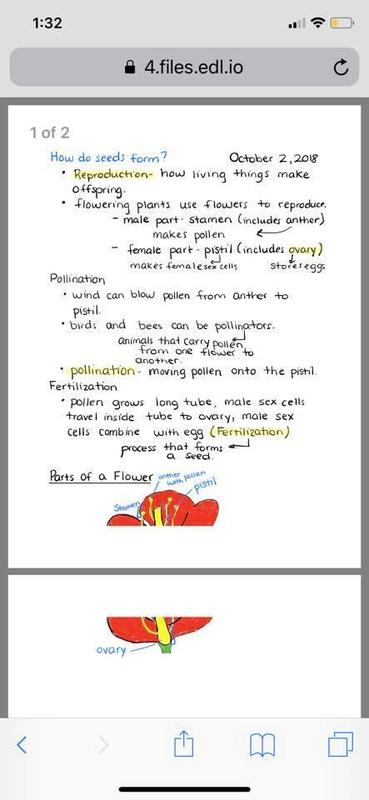 1:32
4.files.edl.io
1 of 2
How do seeds form? October 2, 2018
• Reproduction- how living things make
offspring.
• flowering plants use flowers to reproduce.
- male part- stamen (includes anther)
makes pollen
- female part- pistil (includes ovary)
makes female sex cells stores eggs
Pollination
• wind can blow pollen from anther to
pistil.
• birds and bees can be pollinators.
animals that carry pollen
from one flower to
another.
• pollination- moving pollen onto the pistil.
Fertilization
• pollen grows long tube, male sex cells
travel inside tube to ovary, male sex
cells combine with egg (Fertilization)
process that forms
a seed.
Parts of a Flower
anther
with pollen
pistil
Stamen
ovary